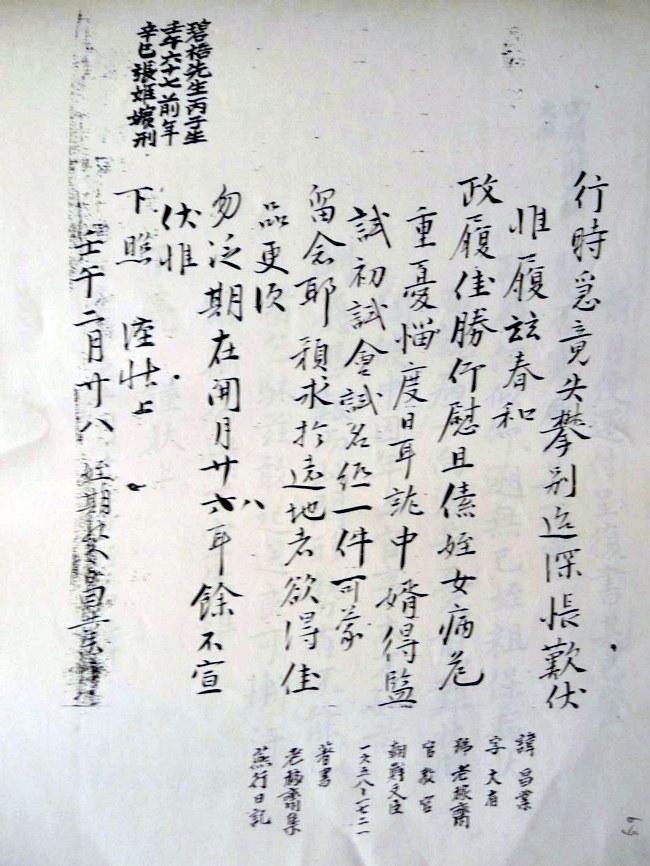 行時忽竟失攀別迄深悵歎伏
惟履玆春和
政履佳勝仰慰且傃姪女病危
重憂惱度日耳就中婿得監
試初試會試名紙一件可蒙
留念耶 預求於遠地者欲得佳
品更須
勿泛期在開月廿六八耳 餘不宣
伏惟
下照 狀上
壬午二月廿八 姪期 昌業
碧梧先生丙子生
壬午六十七前年
辛巳張姬嬪刑
諱 昌業
字 大有
號 老稼齋
官 敎官
朝鮮文臣
一六五八~一七二一
著書
老稼齋集
燕行日記